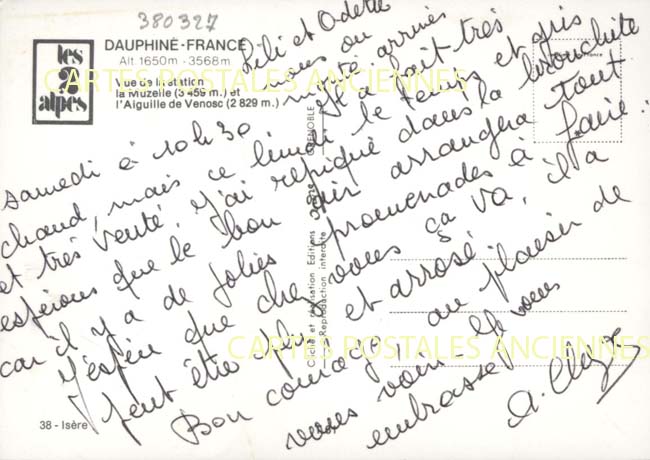 380327
les
2
alpes
DAUPHINÉ-FRANCE
Alt. 1650m - 3568m
Vue de la station
la Muzelle (3 459 m.) et
l'Aiguille de Venosc (2 829 m.)
CARTES POSTALES ANCIENNES
Lili et Odette
nous ou
arrivés
samedi à 10h30
Il a fait très
chaud, mais ce lundi le temps et gris
et très venté, j'ai repiqué dans la bronchite
espérons que le bon air arrangera tout
car il y a de jolies promenades à faire.
J'espère que chez vous ça va, il a
peut être plu et arrosé.
Bon courage, au plaisir de
vous voir. Je vous
embrasse
GRENOBLE
Cliché et réalisation Editions
Reproduction interdite
CARTES POSTALES ANCIENNES
38 - Isère